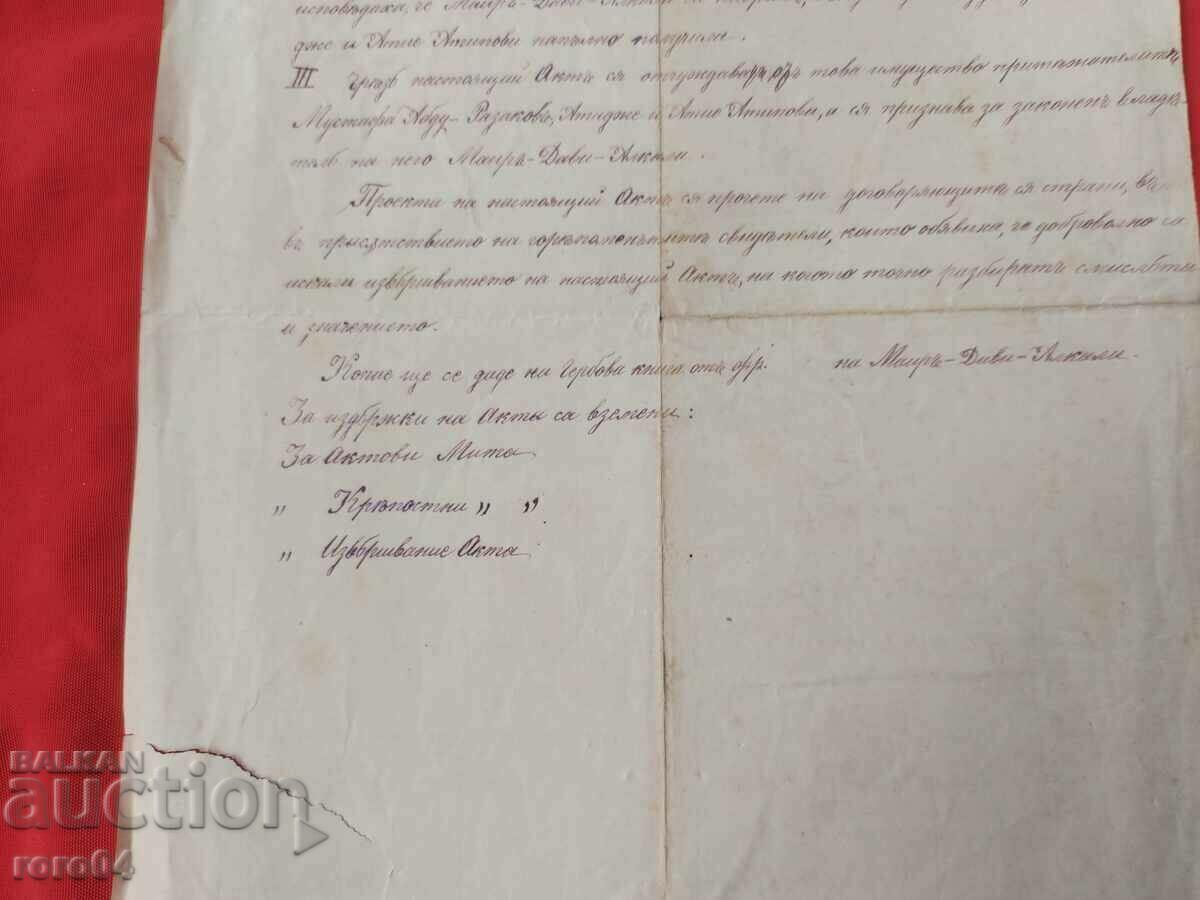 исповѣдаха, че Маиръ-Дави-Алкали
дже и Атие Атипови напълно получили.
III Чрезъ настоящий Актъ ся отчуждаватъ отъ това имущество притѫжателитѣ
Мустафа Абду-Разаковъ, Атидже и Атие Атипови, а ся признава за законенъ владѣ-
телъ на него Маиръ-Дави-Алкали.
Проекта на настоящий Актъ ся прочете на договорящитѣ ся страни,
въ присѫтствието на горѣпоменѫтитѣ свидѣтели, които обявиха, че доброволно са
искали извършванието на настоящий Актъ, на който точно разбиратъ смисълътъ
и значението.
Копие ще се даде на Гербова книга отъ фр. на Маиръ-Дави-Алкали.
За издържки на Акты са вземени:
За Актови Мита
„ Крѣпостни „ „
„ Извършвание Акта
BALKAN
auction
roro04